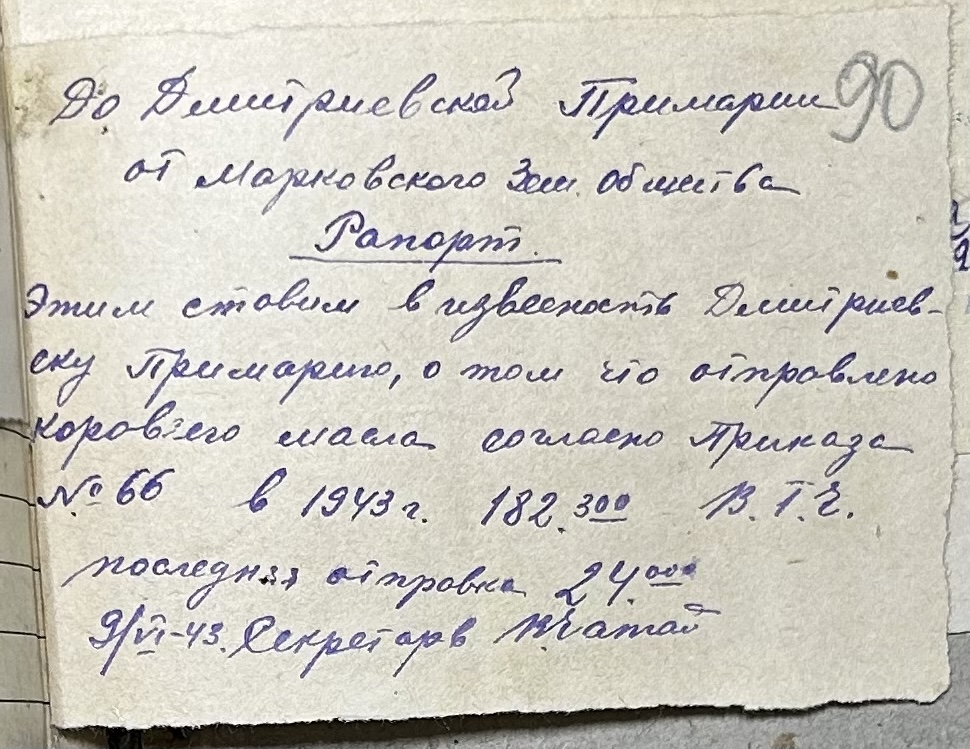 90
До Дмитриевской Примарии
от Марковского Зем. общества
Рапорт.
Этим ставим в извесность Дмитриев-
ску Примарию, о том что отправлено
коровьего масла согласно Приказа
№ 66 в 1943 г. 182.300 В.Т.Ч.
последняя отправка 24.000
9/VI-43. Секретарь